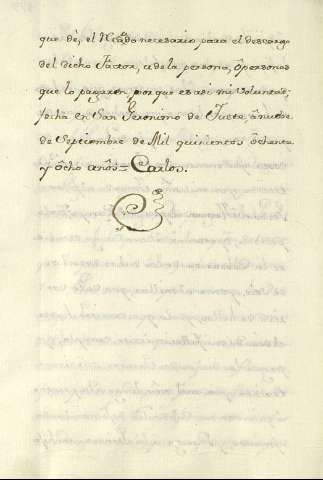 que dè, el Rĉado necesario para el descargo
del dicho Factor, u de la persona, ò personas
que lo pagaren, por que es asi mi Voluntad;
fecha en San Geronimo de Juste, à nuebe
de Septiembre de Mil quinientos òchenta
y òcho años = Carlos.